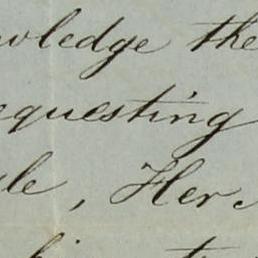 wledge the
equesting
le, Her